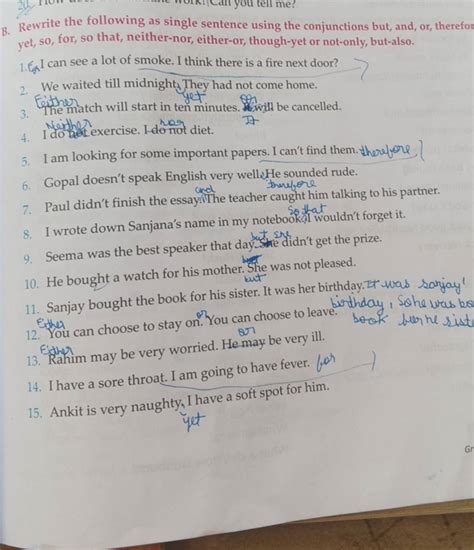 work! (Can you tell me?
B. Rewrite the following as single sentence using the conjunctions but, and, or, therefor
yet, so, for, so that, neither-nor, either-or, though-yet or not-only, but-also.
1. I can see a lot of smoke. I think there is a fire next door?
2. We waited till midnight. They had not come home.
yet
Either or
3. The match will start in ten minutes. It will be cancelled.
Neither nor It
4. I do not exercise. I do not diet.
5. I am looking for some important papers. I can't find them. therefore
6. Gopal doesn't speak English very well. He sounded rude.
and therefore
7. Paul didn't finish the essay. The teacher caught him talking to his partner.
so that
8. I wrote down Sanjana's name in my notebook. I wouldn't forget it.
but she
9. Seema was the best speaker that day. She didn't get the prize.
10. He bought a watch for his mother. She was not pleased.
but
11. Sanjay bought the book for his sister. It was her birthday. It was sanjay'
Either or birthday, So he was bo
12. You can choose to stay on. You can choose to leave. book
Either or
13. Rahim may be very worried. He may be very ill.
14. I have a sore throat. I am going to have fever. for
15. Ankit is very naughty, I have a soft spot for him.
yet
Gr